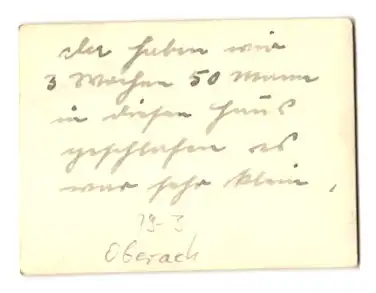 da haben wir
3 Wochen 50 Mann
in diesen Haus
geschlafen es
war sehr klein,
19-3
Oberach